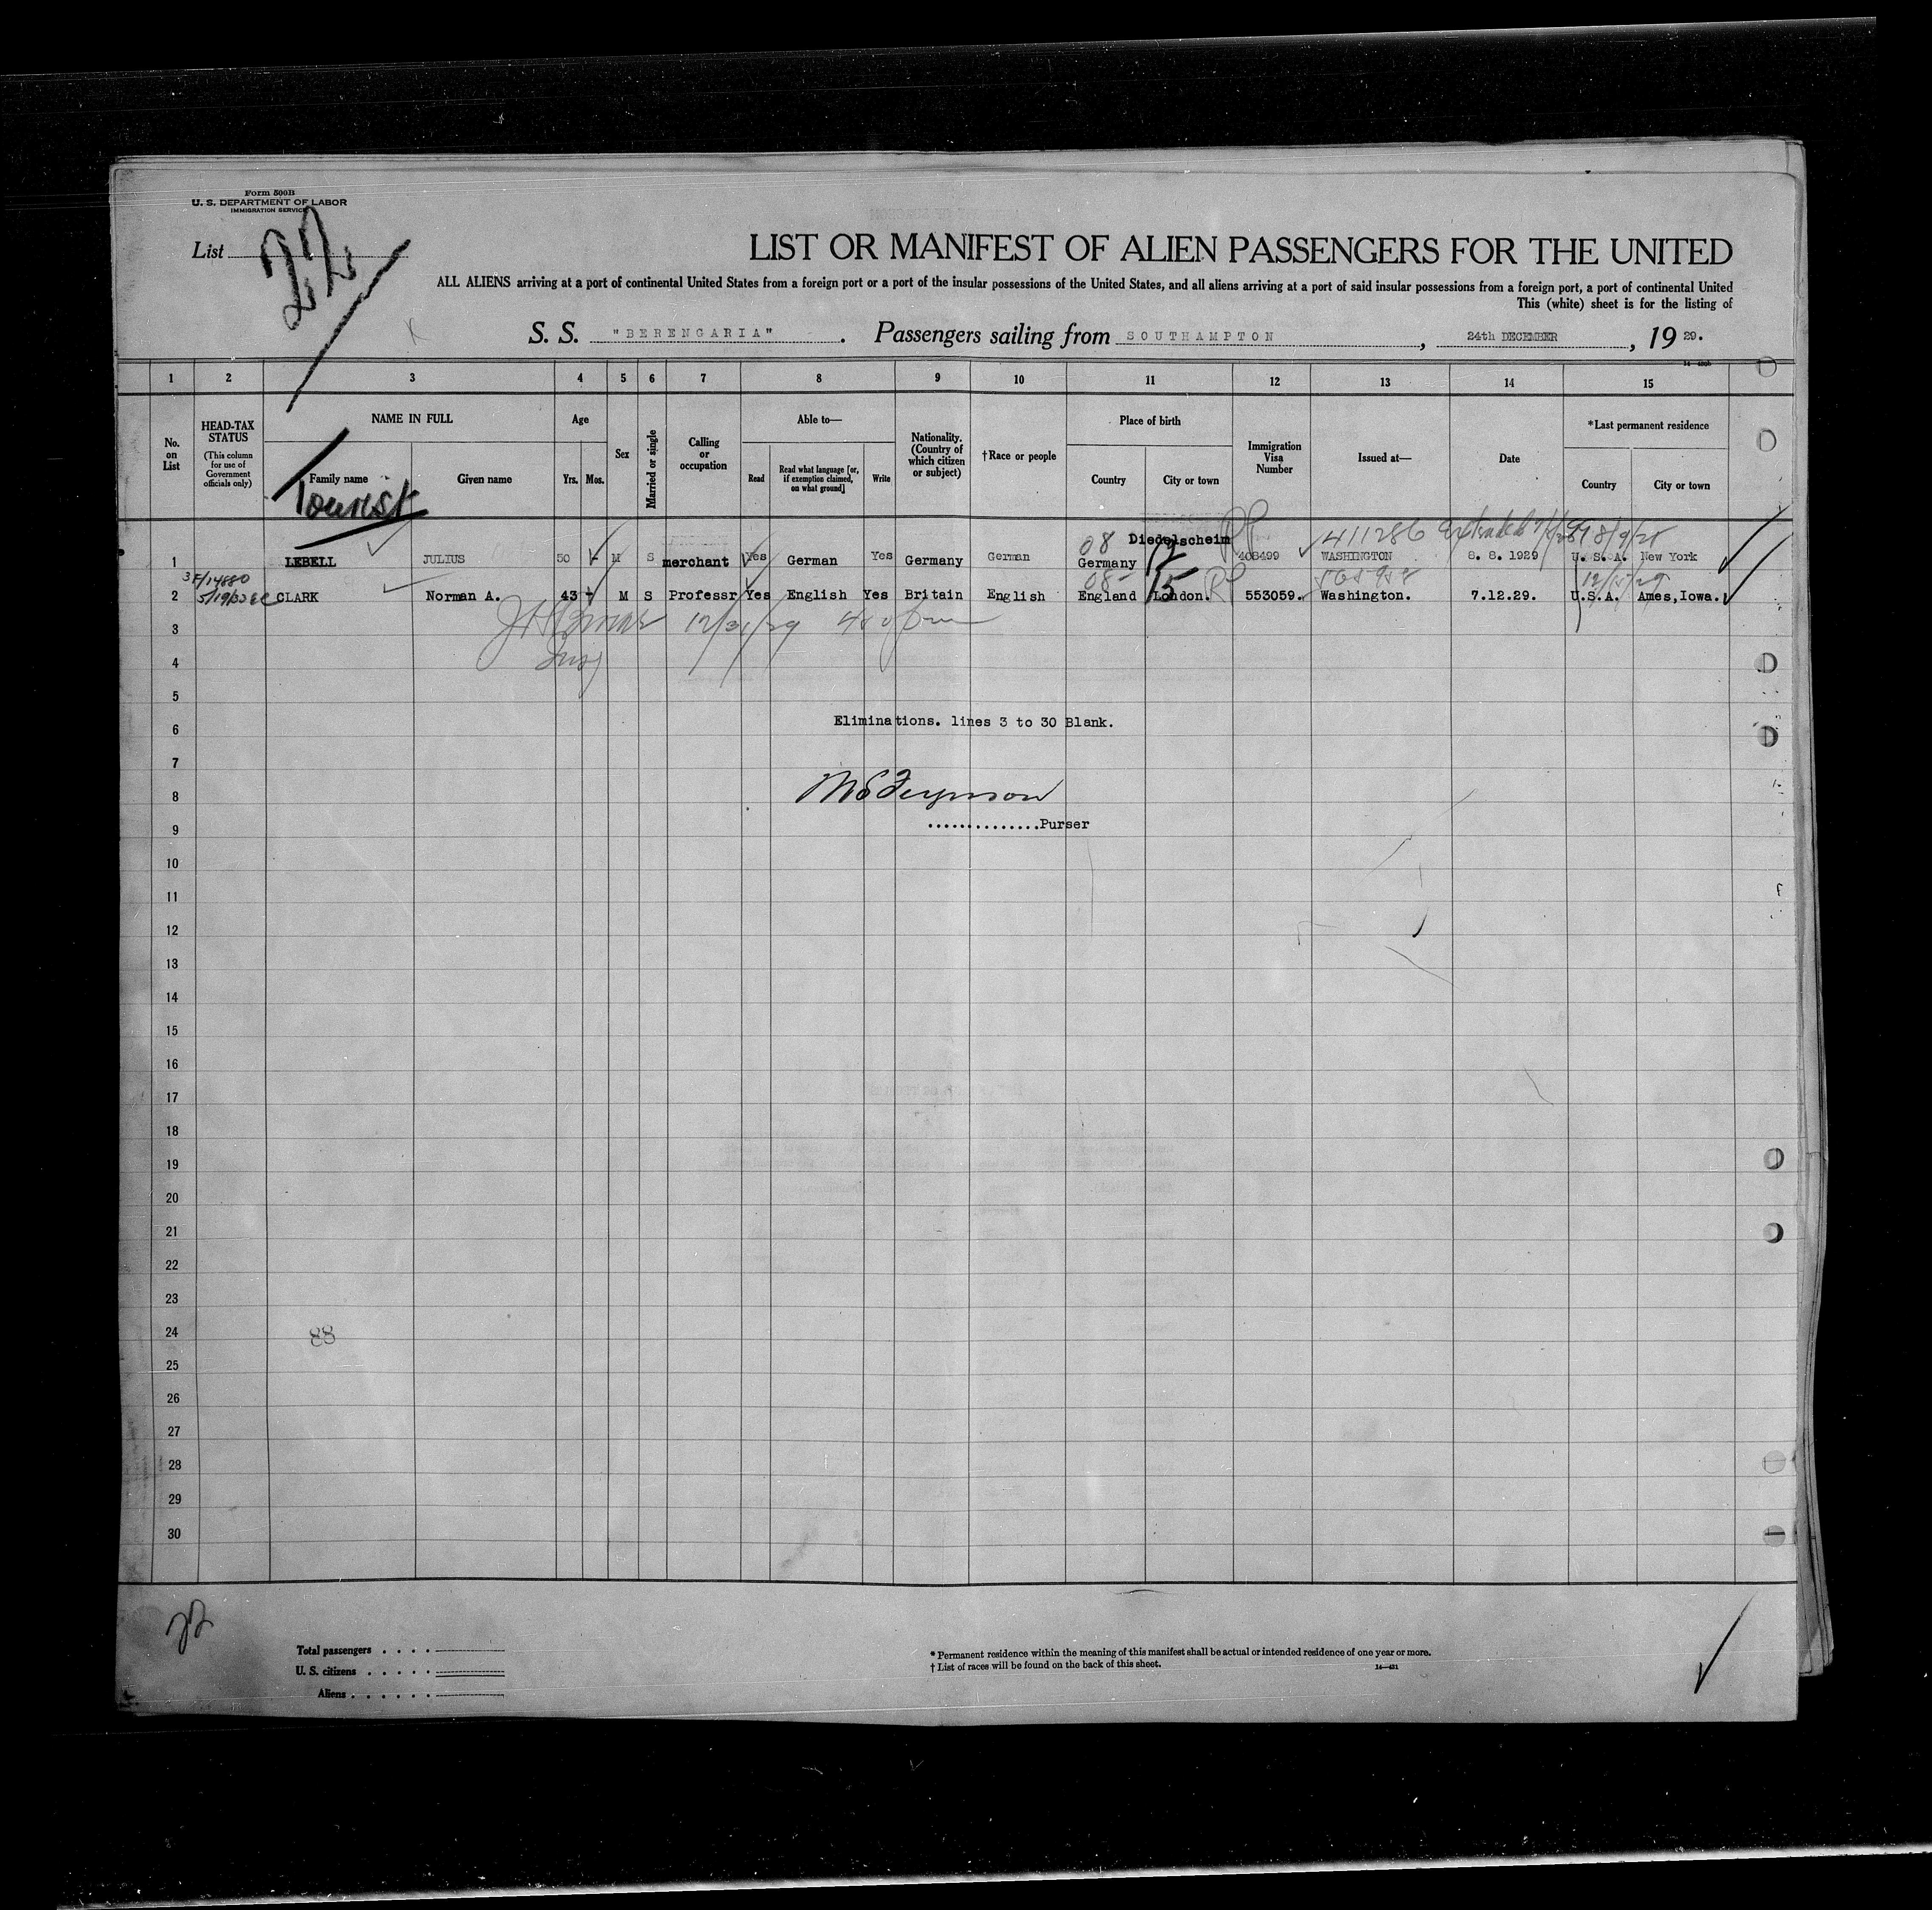 Form 500B
U. S. DEPARTMENT OF LABOR
IMMIGRATION SERVICE
List 22
LIST OR MANIFEST OF ALIEN PASSENGERS FOR THE UNITED
ALL ALIENS arriving at a port of continental United States from a foreign port or a port of the insular possessions of the United States, and all aliens arriving at a port of said insular possessions from a foreign port, a port of continental United
This (white) sheet is for the listing of
S. S. "BERENGARIA". Passengers sailing from SOUTHAMPTON, 24th DECEMBER, 19 29.
1 2 3 4 5 6 7 8 9 10 11 12 13 14 15
No. on List
HEAD-TAX STATUS (This column for use of Government officials only)
NAME IN FULL
Family name Given name
Tourist
Age
Yrs. Mos.
Sex
Married or single
Calling or occupation
Able to—
Read Read what language [or, if exemption claimed, on what ground] Write
Nationality. (Country of which citizen or subject)
†Race or people
Place of birth
Country City or town
Immigration Visa Number
Issued at—
Date
*Last permanent residence
Country City or town
08 Diedelscheim 411286
1 LEBELL JULIUS 50 - M S merchant Yes German Yes Germany German Germany 408499 WASHINGTON 8. 8. 1929 U. S. A. New York
3F/14880 08 12/15/29
2 CLARK Norman A. 43 - M S Professr Yes English Yes Britain English England London. 553059. Washington. 7.12.29. U.S.A. Ames, Iowa.
3 12/31/29
4
5
6 Eliminations. lines 3 to 30 Blank.
7
8
9 ..............Purser
10
11
12
13
14
15
16
17
18
19
20
21
22
23
24 88
25
26
27
28
29
30
22
Total passengers . . . .
U. S. citizens . . . . .
Aliens . . . . . .
* Permanent residence within the meaning of this manifest shall be actual or intended residence of one year or more.
† List of races will be found on the back of this sheet.
14—421